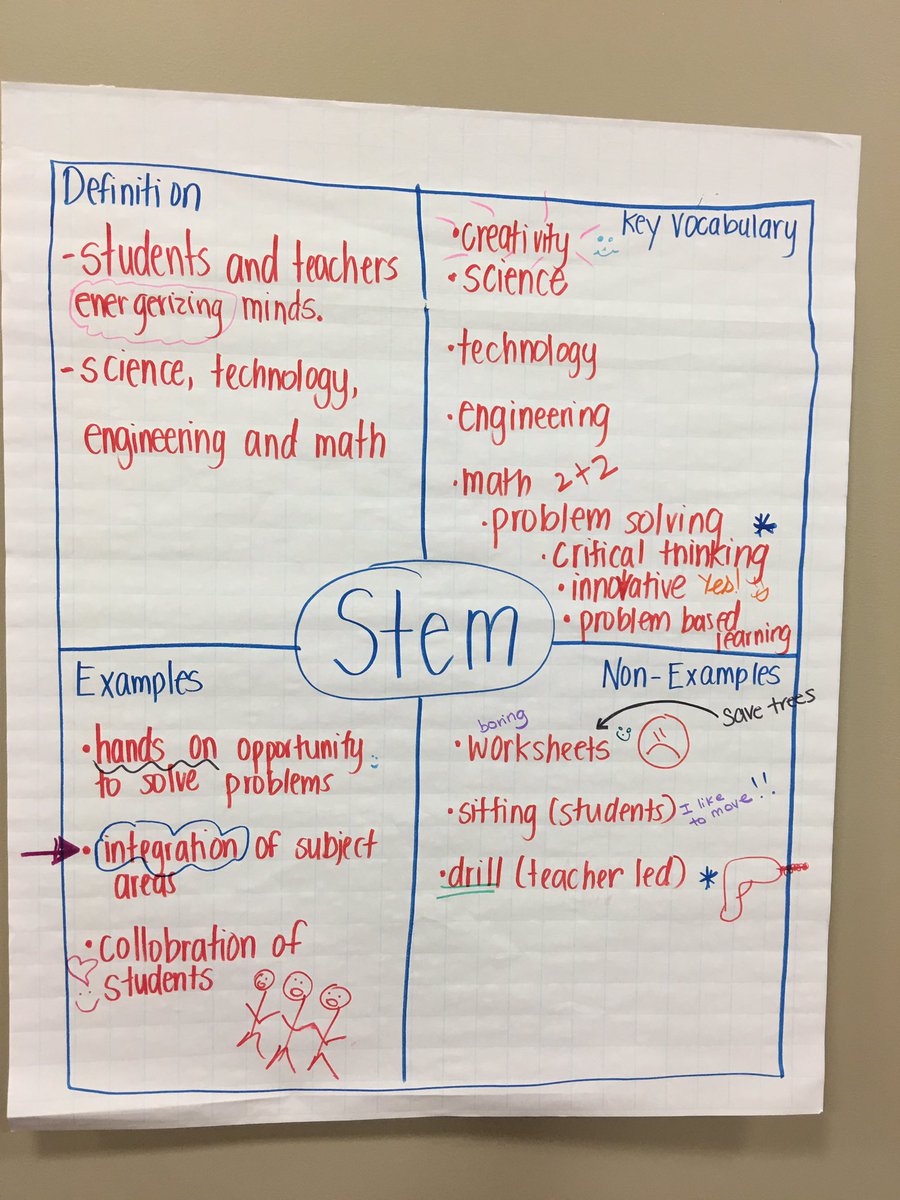 Definition
-students and teachers
energerizing minds.
-science, technology,
engineering and math
Key Vocabulary
•creativity
•science
•technology
•engineering
•math 2+2
•problem solving *
•critical thinking
•innovative Yes!
•problem based
learning
Stem
Examples
•hands on opportunity
to solve problems
•integration of subject
areas
•collobration of
students
Non-Examples
save trees
boring
•worksheets
•sitting (students) I like
to move!!
•drill (teacher led) *